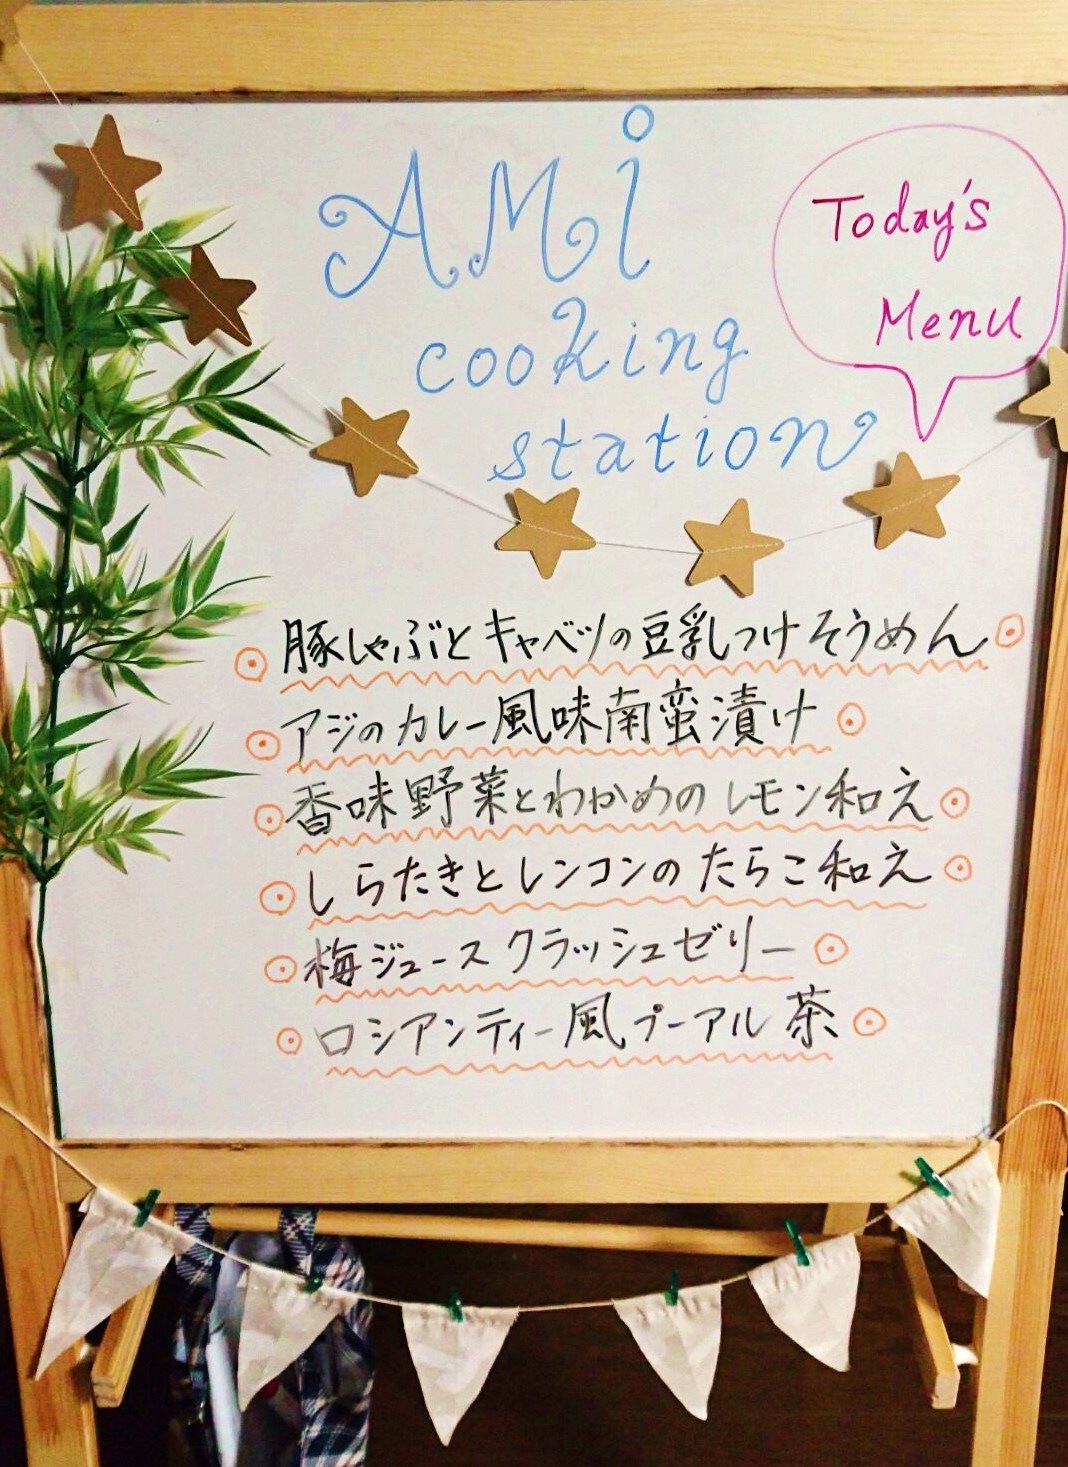 AMi
cooking
station
Today's
Menu
豚しゃぶとキャベツの豆乳つけそうめん
アジのカレー風味南蛮漬け
香味野菜とわかめのレモン和え
しらたきとレンコンのたらこ和え
梅ジュースクラッシュゼリー
ロシアンティー風プーアル茶